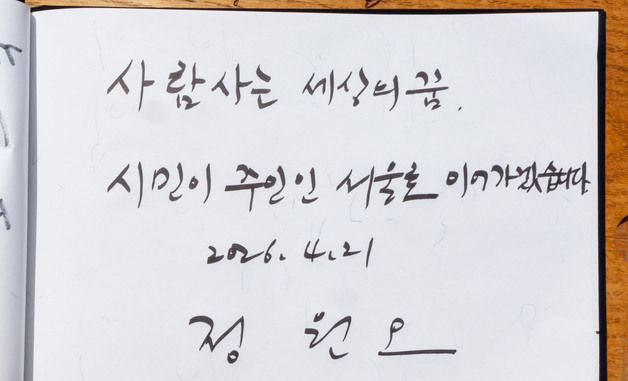 사람사는 세상의 꿈.
시민이 주인인 서울로 이어가겠습니다
2026. 4. 21
정 원 오